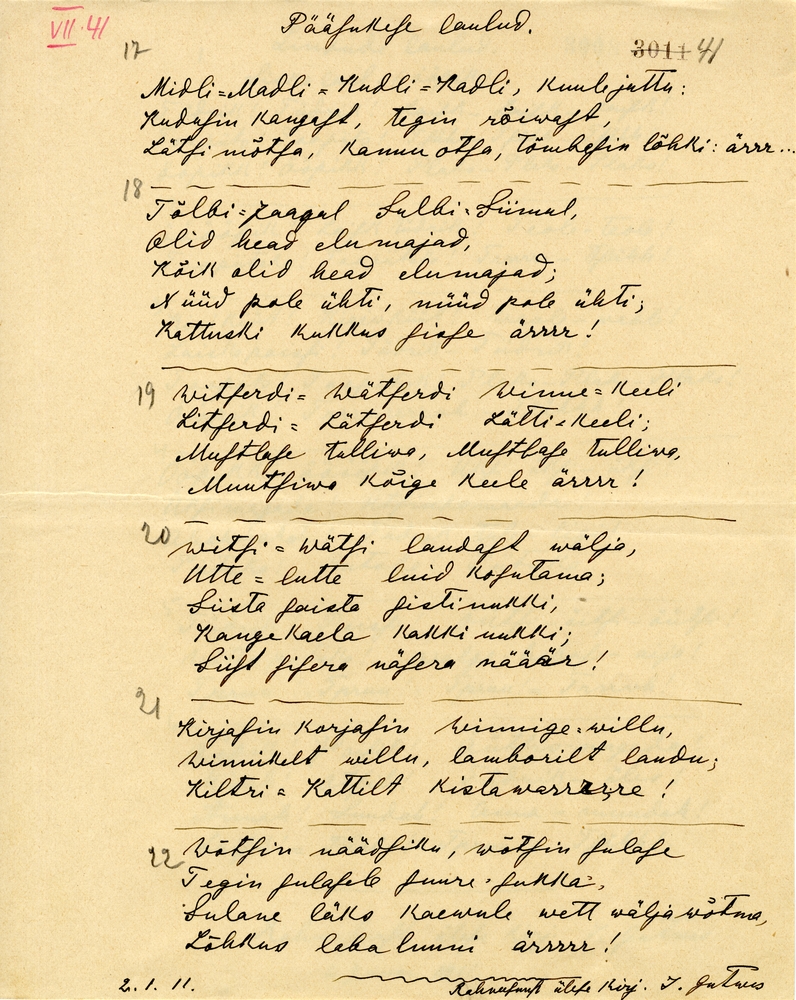 VII. 41
Pääsukese laulud.
3011 41
17
Midli=Madli=Kudli=Kadli, kuule juttu:
Kudusin kangast, tegin rõiwast,
Lätsi mõtsa, kannu otsa, Tõmbasin lõhki: ärrr...
18
Tõlbi=Jaagul Sulbi=Siimul,
Olid head elumajad,
Kõik olid head elumajad;
Nüüd pole ühti, nüüd pole ühti;
Kattuski kukkus sisse ärrrr!
19
Witserdi=Wätserdi Winne=Keeli
Litserdi=Lätserdi Lätti=Keeli;
Mustlase tulliwa, Mustlase tulliwa,
Muutsiwa kõige keele ärrrr!
20
Witsi=Wätsi laudast wälja,
Utte=lutte luid kosutama;
Siista saista sistinukki,
Kangekaela kakkinukki;
Siist sisera näsera nääär!
21
Kirjasin korjasin Winnige=willu,
Winnikelt willu, lamborilt laudu;
Kiltri=Kattilt kistawarrrrre!
22
Wõtsin näädsiku, wõtsin sulase
Tegin sulasele suure=sukka,
Sulane läks kaewule wett wälja wõtma,
Lõhkus laba luuni ärrrrr!
2. 1. 11.
Rahwasuust üles kirj. J.